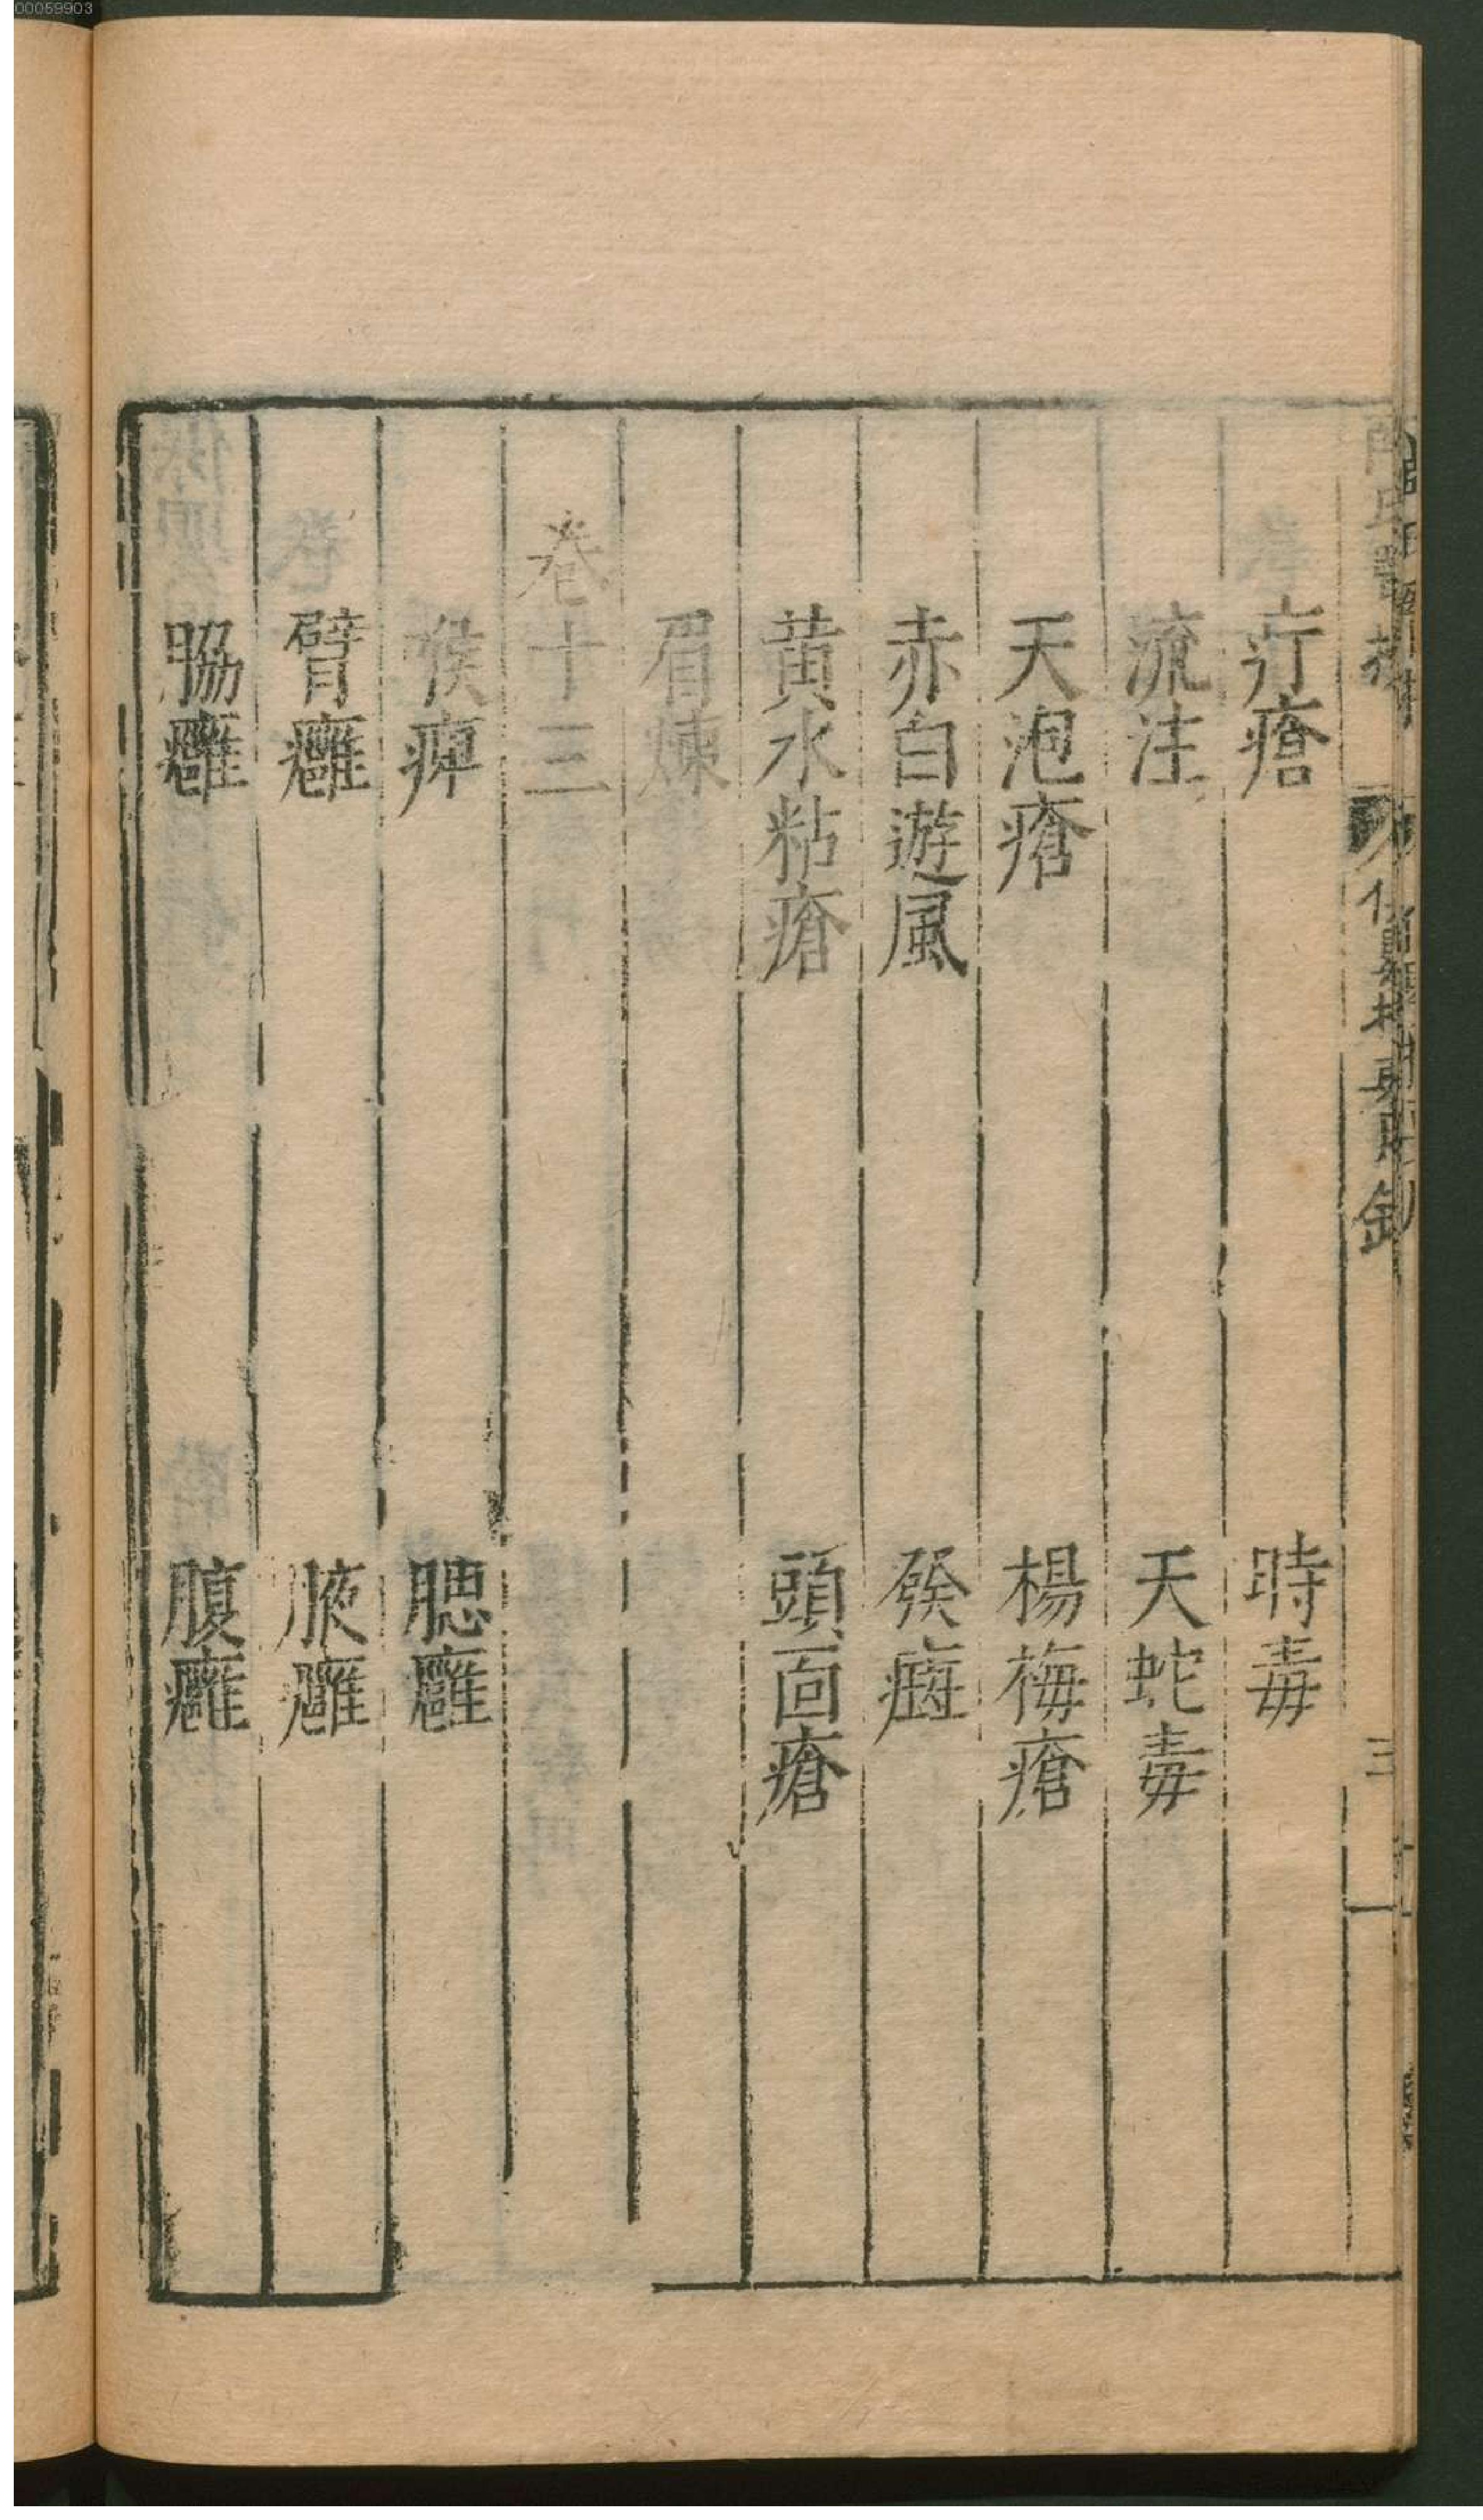 00059903
疔瘡 時毒
流注 天蛇毒
天泡瘡 楊梅瘡
赤白遊風 發痱
黄水粘瘡 頭面瘡
眉煉
卷十三
喉痺 腮癰
臂癰 腋癰
脇癰 腹癰